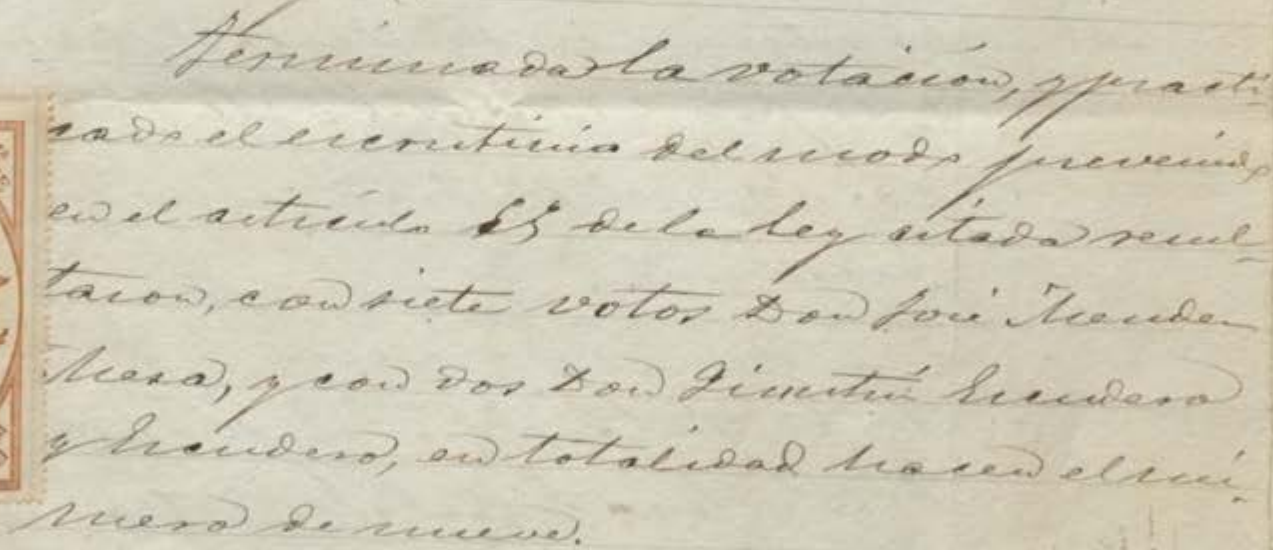 Terminada la votación, y practi-
cado el escrutinio del modo prevenido
en el artículo 55 de la ley citada resul-
taron, con siete votos Don José
y con dos Don Escudero
y Escudero, en totalidad hacen el nú-
mero de nueve.